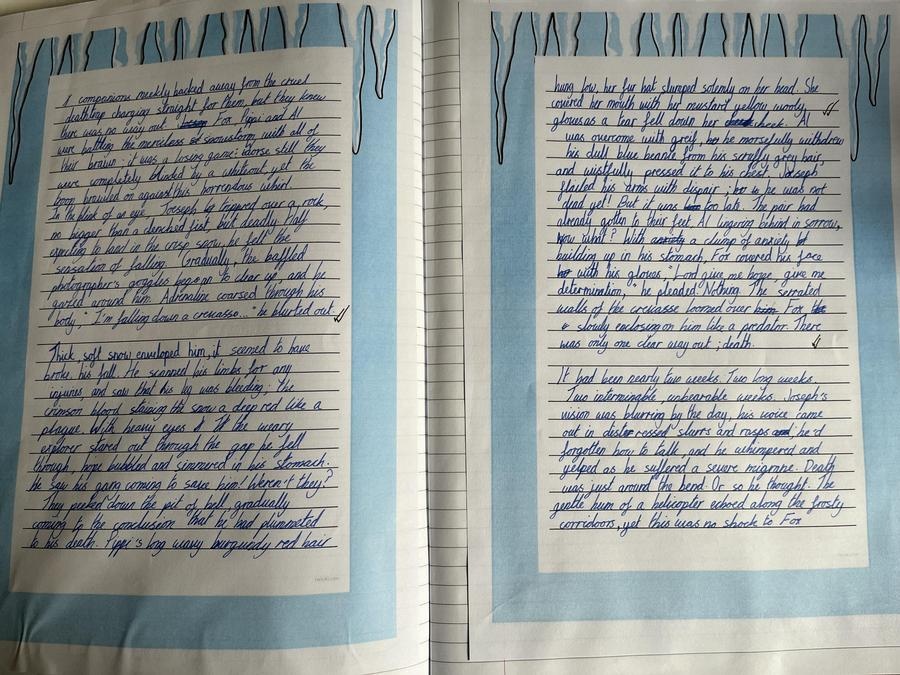 companions meekly backed away from the cruel
deathtrap charging straight for them, but they knew
there was no way out. Fox Pippi and Al
were battling the merciless snowstorm with all of
their brawn: it was a losing game: worse still they
were completely blinded by a whiteout, yet the
trawled on against this horrendous whirl.
In the blink of an eye, Joseph tripped over a rock
no bigger than a clenched fist, but deadly. Half
expecting to land in the crisp snow, he felt the
sensation of falling. Gradually, the baffled
photographer's goggles began to clear up, and he
gazed around him. Adrenaline coarsed through his
body, "I'm falling down a crevasse..." he blurted out.
Thick, soft snow enveloped him, it seemed to have
broke his fall. He scanned his limbs for any
injuries, and saw that his leg was bleeding; the
crimson blood staining the snow a deep red like a
plague. With heavy eyes the weary
explorer stared out through the gap he fell
through, hope bubbled and simmered in his stomach.
He saw his gang coming to save him! Weren't they?
They peeked down the pit of hell gradually
coming to the conclusion that he had plummeted
to his death. Pippi's long wavy burgundy red hair
hung low, her fur hat slumped solemly on her head. She
covered her mouth with her mustard yellow wooly
gloves as a tear fell down her cheek. Al
was overcome with greif, he morsefully withdrew
his dull blue beanie from his scruffy grey hair,
and wistfully pressed it to his chest. Joseph
flailed his arms with dispair; he was not
dead yet! But it was too late. The pair had
already gotten to their feet Al lingering behind in sorrow,
now what? With a clump of anxiety
building up in his stomach, Fox covered his face
with his gloves. "Lord give me hope, give me
determination," he pleaded. Nothing. The serrated
walls of the crevasse loomed over Fox
slowly enclosing on him like a predator. There
was only one clear way out; death.
It had been nearly two weeks. Two long weeks.
Two interminable, unbearable weeks. Joseph's
vision was blurring by the day, his voice came
out in distressed slurrs and rasps he'd
forgotten how to talk, and he whimpered and
yelped as he suffered a severe migrane. Death
was just around the bend. Or so he thought. The
gentle hum of a helicopter echoed along the frosty
corridoors, yet this was no shock to Fox